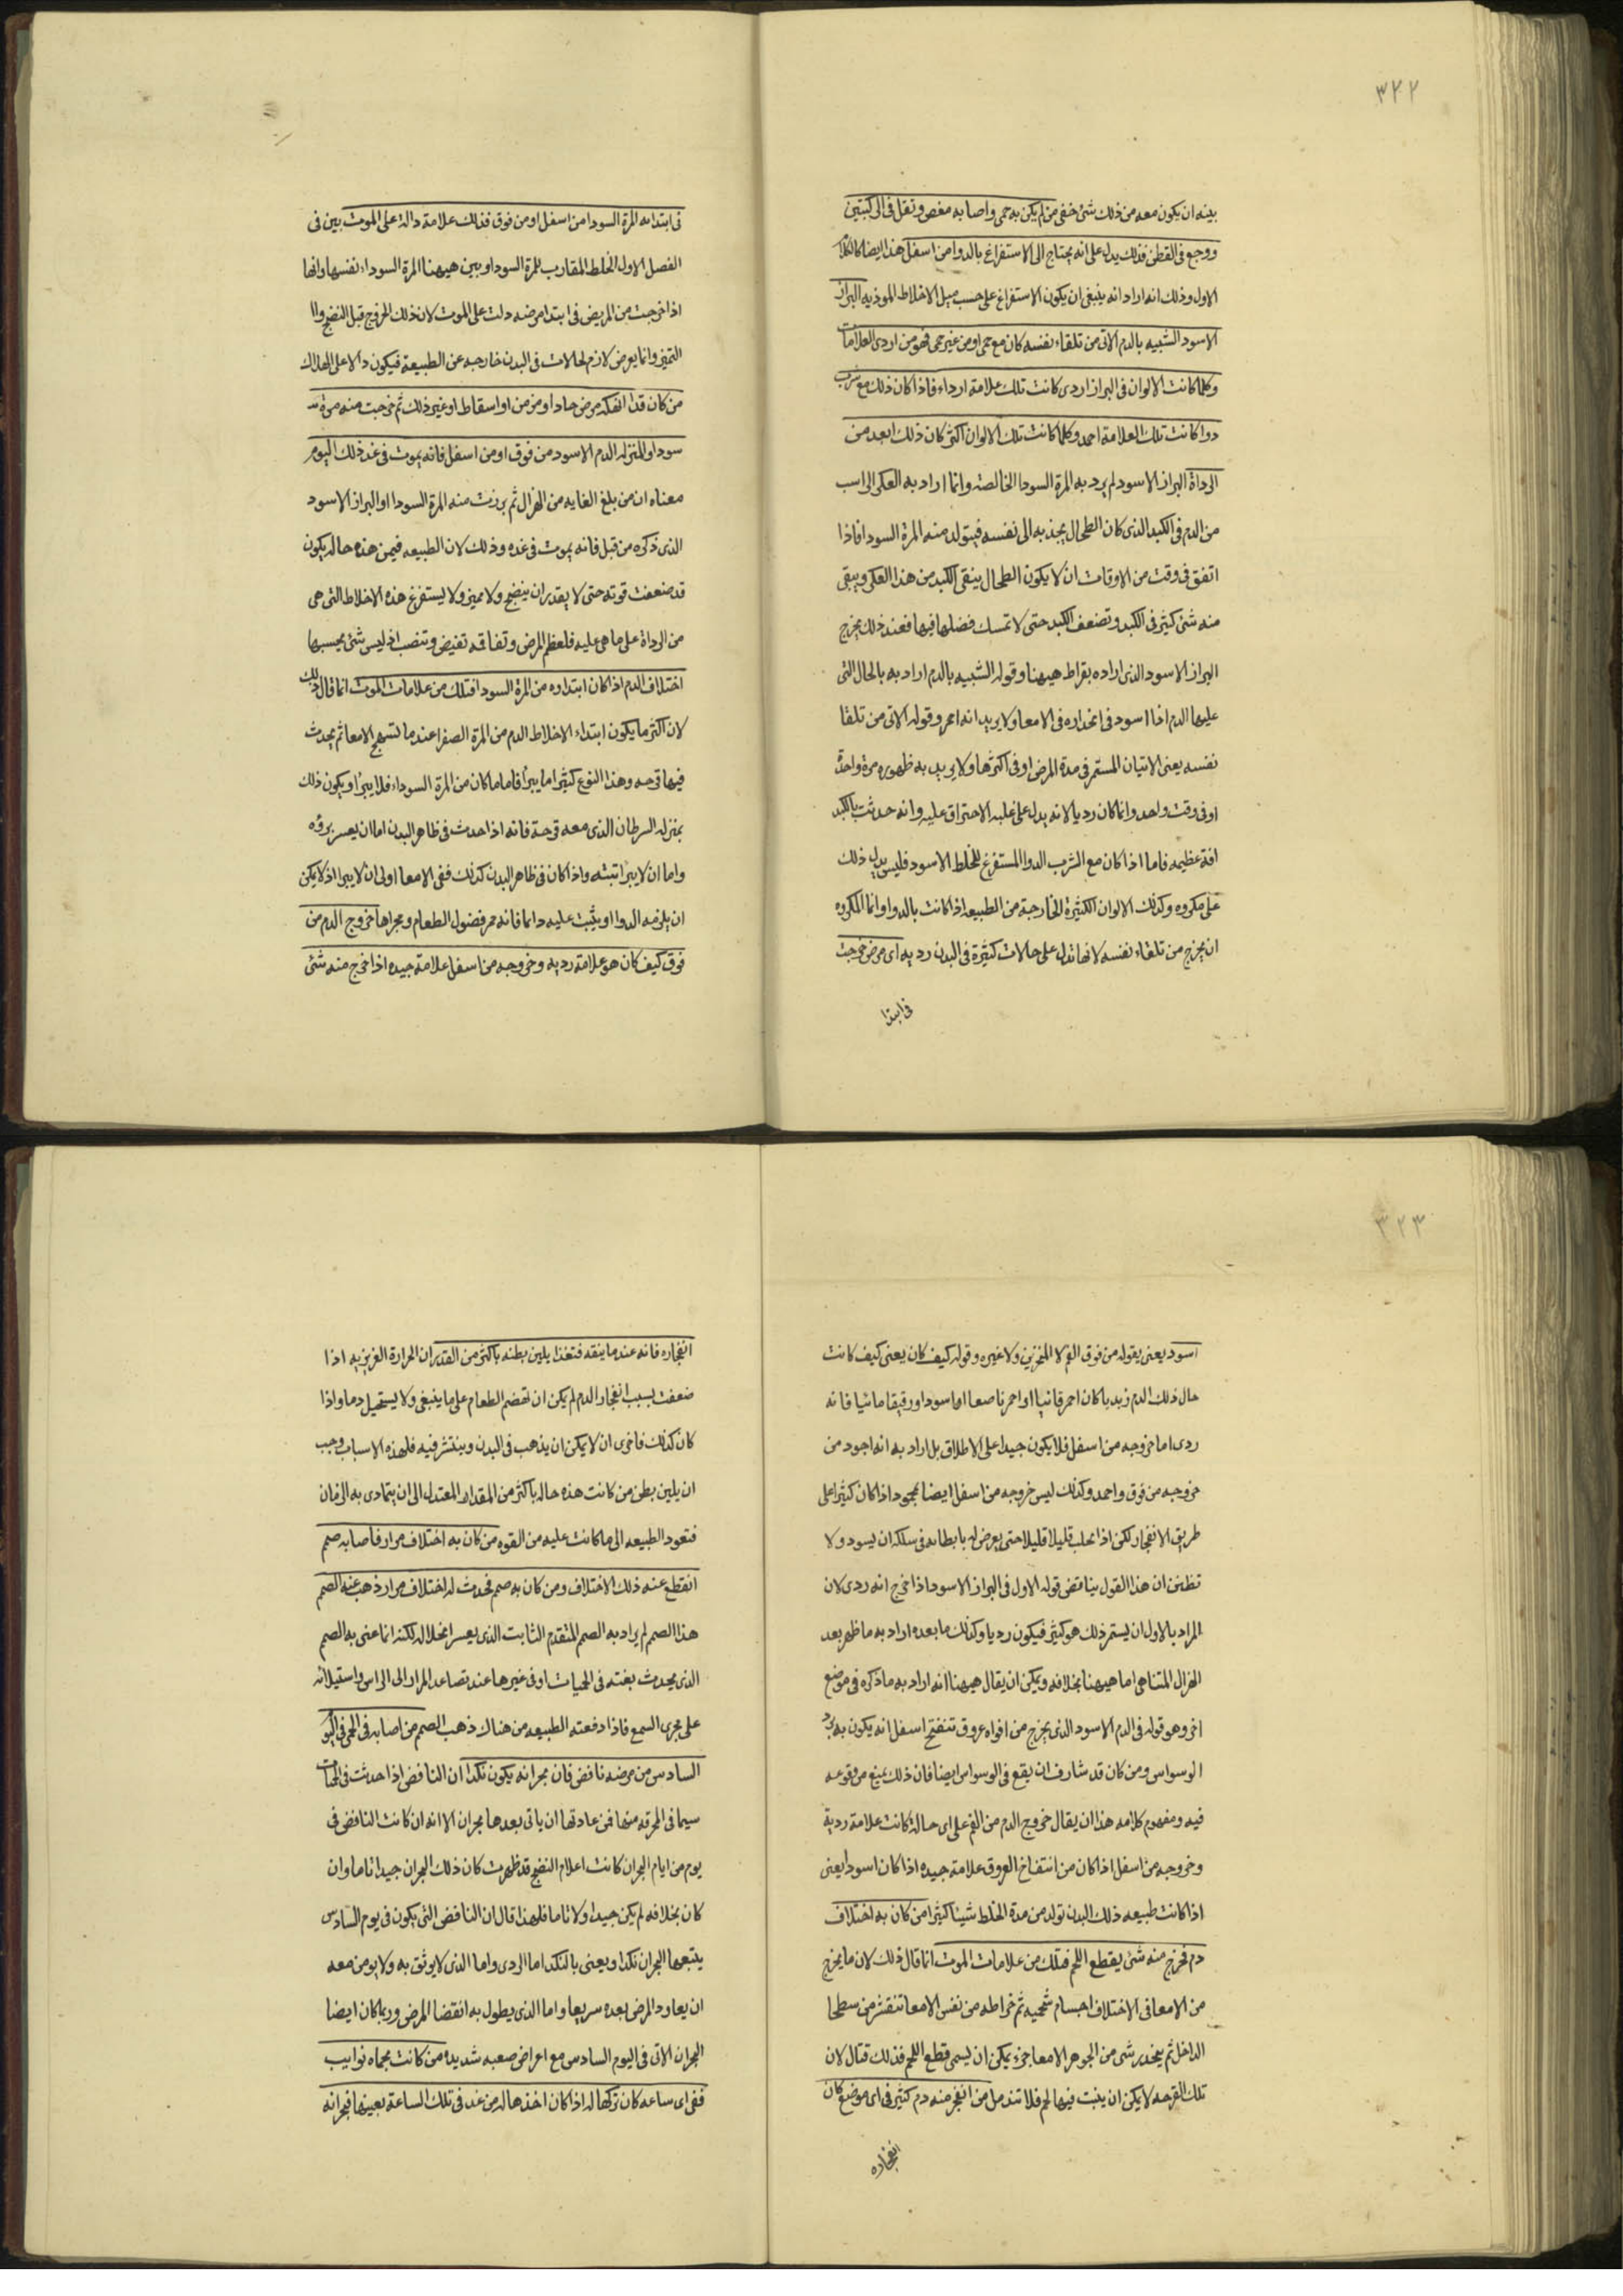 ٣٢٢
بينه ان يكون معه من ذلك شئ خفى من لم يكن به حمى واصابه مغص وثقل فى الركبتين
ووجع فى القطن فذلك يدل على انه يحتاج الى الاستفراغ بالدوا من اسفل هذا ايضا كالكلام
الاول وذلك انه اراد انه ينبغى ان يكون الاستفراغ على حسب ميل الاخلاط الموذيه البراز
الاسود الشبيه بالدم الاتى من تلقاء نفسه كان مع حمى او من غير حمى فهو من اردى العلامات
وكلما كانت الالوان فى البراز اردى كانت تلك علامة ارداء فاذا كان ذلك مع شرب
دوا كانت تلك العلامة احمد وكلما كانت تلك الالوان اكثر كان ذلك ابعد من
الرداة البراز الاسود لم يرد به المرة السودا الخالصة وانما اراد به العكر الراسب
من الدم فى الكبد الذى كان الطحال يجذبه الى نفسه فيتولد منه المرة السودا فاذا
اتفق فى وقت من الاوقات ان لا يكون الطحال ينقى الكبد من هذا العكر ويبقى
منه شئ كثير فى الكبد وتضعف الكبد حتى لا تمسك فضلها فيها فعند ذلك يخرج
البراز الاسود الذى اراده بقراط هيهنا وقوله الشبيه بالدم اراد به بالحال التى
عليها الدم اذا اسود فى انحداره فى الامعا ولا يريد انه احمر وقوله الاتى من تلقا
نفسه يعنى الاتيان المستمر فى مدة المرض او فى اكثرها ولا يريد به ظهوره مرة واحدة
او فى وقت واحد وانما كان رديا لانه يدل على غلبه الاحتراق عليه وانه حدثت بالكبد
افة عظيمه فاما اذا كان مع الشرب الدوا المستفرغ للخلط الاسود فليس يدل ذلك
على مكروه وكذلك الالوان الكثيرة الخارجة من الطبيعه اذا كانت بالدوا وانما المكروه
ان يخرج من تلقاء نفسه لانها تدل على حالات كثيرة فى البدن رديه اى مرض خرجت
فى ابتدا
فى ابتدائه المرة السودا من اسفل او من فوق فذلك علامة دالة على الموت بين فى
الفصل الاول الخلط المقارب للمرة السودا وبين هيهنا المرة السوداء نفسها وانها
اذا خرجت من المريض فى ابتدا مرضه دلت على الموت لان ذلك الخروج قبل النضج والا
التميز وانما يعرض لازم لحالات فى البدن خارجه عن الطبيعة فيكون دالا على الهلاك
من كان قد انهكه مرض حاد او مزمن او اسقاط او غير ذلك ثم خرجت منه مرة
سودا او بمنزله الدم الاسود من فوق او من اسفل فانه يموت فى غد ذلك اليوم
معناه ان من بلغ الغايه من الهزال ثم برزت منه المرة السودا او البراز الاسود
الذى ذكره من قبل فانه يموت فى غده وذلك لان الطبيعه فيمن هذه حاله يكون
قد ضعفت قوته حتى لا يقدر ان ينضج ولا يميز ولا يستفرغ هذه الاخلاط التى هى
من الرداة على ما هى عليه فلعظم المرض وتفاقمه تفيض وتنصب اذ ليس شئ يحبسها
اختلاف الدم اذا كان ابتداوه من المرة السودا فتلك من علامات الموت انما قال ذلك
لان اكثر ما يكون ابتداء الاخلاط الدم من المرة الصفرا عندما تسحج الامعا ثم يحدث
فيها قرحه وهذا النوع كثيرا ما يبرأ فاما ما كان من المرة السوداء فلا يبرأ ويكون ذلك
بمنزله السرطان الذى معه قرحة فانه اذا حدث فى ظاهر البدن اما ان يعسر بروه
واما ان لا يبرأ بتة واذا كان فى ظاهر البدن كذلك ففى الامعا اولى ان لا يبرا اذ لا يمكن
ان يلزمه الدوا ويثبت عليه دايما فانه ممر فضول الطعام ومجراها خروج الدم من
فوق كيف كان هو علامة رديه وخروجه من اسفل علامة جيده اذا خرج منه شئ
٣٢٣
اسود يعنى بقوله من فوق الفم لا المنخرين ولا غيره وقوله كيف كان يعنى كيف كانت
حال ذلك الدم زبديا كان احمر قانيا او احمر ناصعا او اسود او رقيقا مائيا فانه
ردى اما خروجه من اسفل فلا يكون جيدا على الاطلاق بل اراد به انه اجود من
خروجه من فوق واحمد وكذلك ليس خروجه من اسفل ايضا بمحمود اذا كان كثيرا على
طريق الانفجار لكن اذا تحلب قليلا قليلا حتى يعرض له بابطائه فى سلكه ان يسود ولا
تظنن ان هذا القول يناقض قوله الاول فى البراز الاسود اذا خرج انه ردى لان
المراد بالاول ان يستمر ذلك هو كثير فيكون رديا وكذلك ما بعده اراد به ما ظهر بعد
الهزال المتناهى اما هيهنا بخلافه ويمكن ان يقال هيهنا انه اراد به ما ذكره فى موضع
اخر وهو قوله فى الدم الاسود الذى يخرج من افواه عروق تنفتح اسفل انه يكون به برء
الوسواس ومن كان قد شارف ان يقع فى الوسواس ايضا فان ذلك يمنع من وقوعه
فيه ومفهوم كلامه هذا ان يقال خروج الدم من الفم على اى حالة كانت علامة ردية
وخروجه من اسفل اذا كان من انتفاخ العروق علامة جيده اذا كان اسود ايعنى
اذا كانت طبيعه ذلك البدن تولد من مدة الخلط شيئا كثيرا من كان به اختلاف
دم فخرج منه شئ يقطع اللحم فتلك من علامات الموت انما قال ذلك لان ما يخرج
من الامعا فى الاختلاف اجسام شحميه ثم خراطه من نفس الامعا تنقشر من سطحا
الداخل ثم ينحدر شى من الجوهر الامعا جزء يمكن ان يسمى قطع اللحم فذلك قتال لان
تلك القرحه لا يمكن ان ينبت فيها لحم فلا تندمل من انفجر منه دم كثير فى اى موضع كان
انفجاره
انفجاره فانه عندما ينقه فتغذا يلين بطنه باكثر من القدر ان الحرارة الغريزيه اذا
ضعفت بسبب انفجار الدم لم يكن ان تهضم الطعام على ما ينبغى ولا يستحيل دما واذا
كان كذلك فاحرى ان لا يمكن ان يذهب فى البدن وينتشر فيه فلهذه الاسباب وجب
ان يلين بطن من كانت هذه حاله باكثر من المقدار المعتدل الى ان يتمادى به الزمان
فتعود الطبيعه الى ما كانت عليه من القوه من كان به اختلاف مرار فاصابه صمم
انقطع عنه ذلك الاختلاف ومن كان به صمم فحدث له اختلاف مرار ذهب عنه الصمم
هذا الصمم لم يراد به الصمم المتقدم الثابت الذى يعسر انحلاله لكنه انما عنى به الصمم
الذى يحدث بغتة فى الحميات او فى غيرها عند تصاعد المرار الى الراس واستيلائه
على مجرى السمع فاذا دفعته الطبيعه من هناك ذهب الصمم من اصابه فى الحمى فى اليوم
السادس من مرضه نافض فان بحرانه يكون نكدا ان النافض اذا حدثت فى الحميات
سيما فى المحرقه منها فمن عادتها ان ياتى بعدها بحران الا انه ان كانت النافض فى
يوم من ايام البحران كانت اعلام النضج قد ظهرت كان ذلك البحران جيدا تاما وان
كان بخلافه لم يكن جيدا ولا تاما فلهذا قال ان النافض التى يكون فى يوم السادس
يتبعها البحران نكدا ويعنى بالنكد اما الردى واما الذى لا يوثق به ولا يومن معه
ان يعاود المرض بعده سريعا واما الذى يطول به انقضا المرض وربما كان ايضا
البحران الاتى فى اليوم السادس مع اعراض صعبه شديده من كانت بحماه نوايب
ففى اى ساعه كان تركها له اذا كان اخذها له من غد فى تلك الساعة بعينها فبحرانه